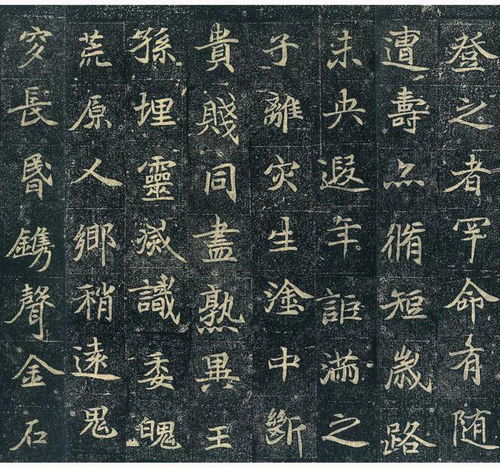 登之者罕命有随
遭壽亦脩短歲路
未央遐年詎滿之
子離灾生塗中斷
貴賤同盡熟異王
孫埋靈滅識委魄
荒原人鄉稍遠鬼
穸長昏鐫聲金石